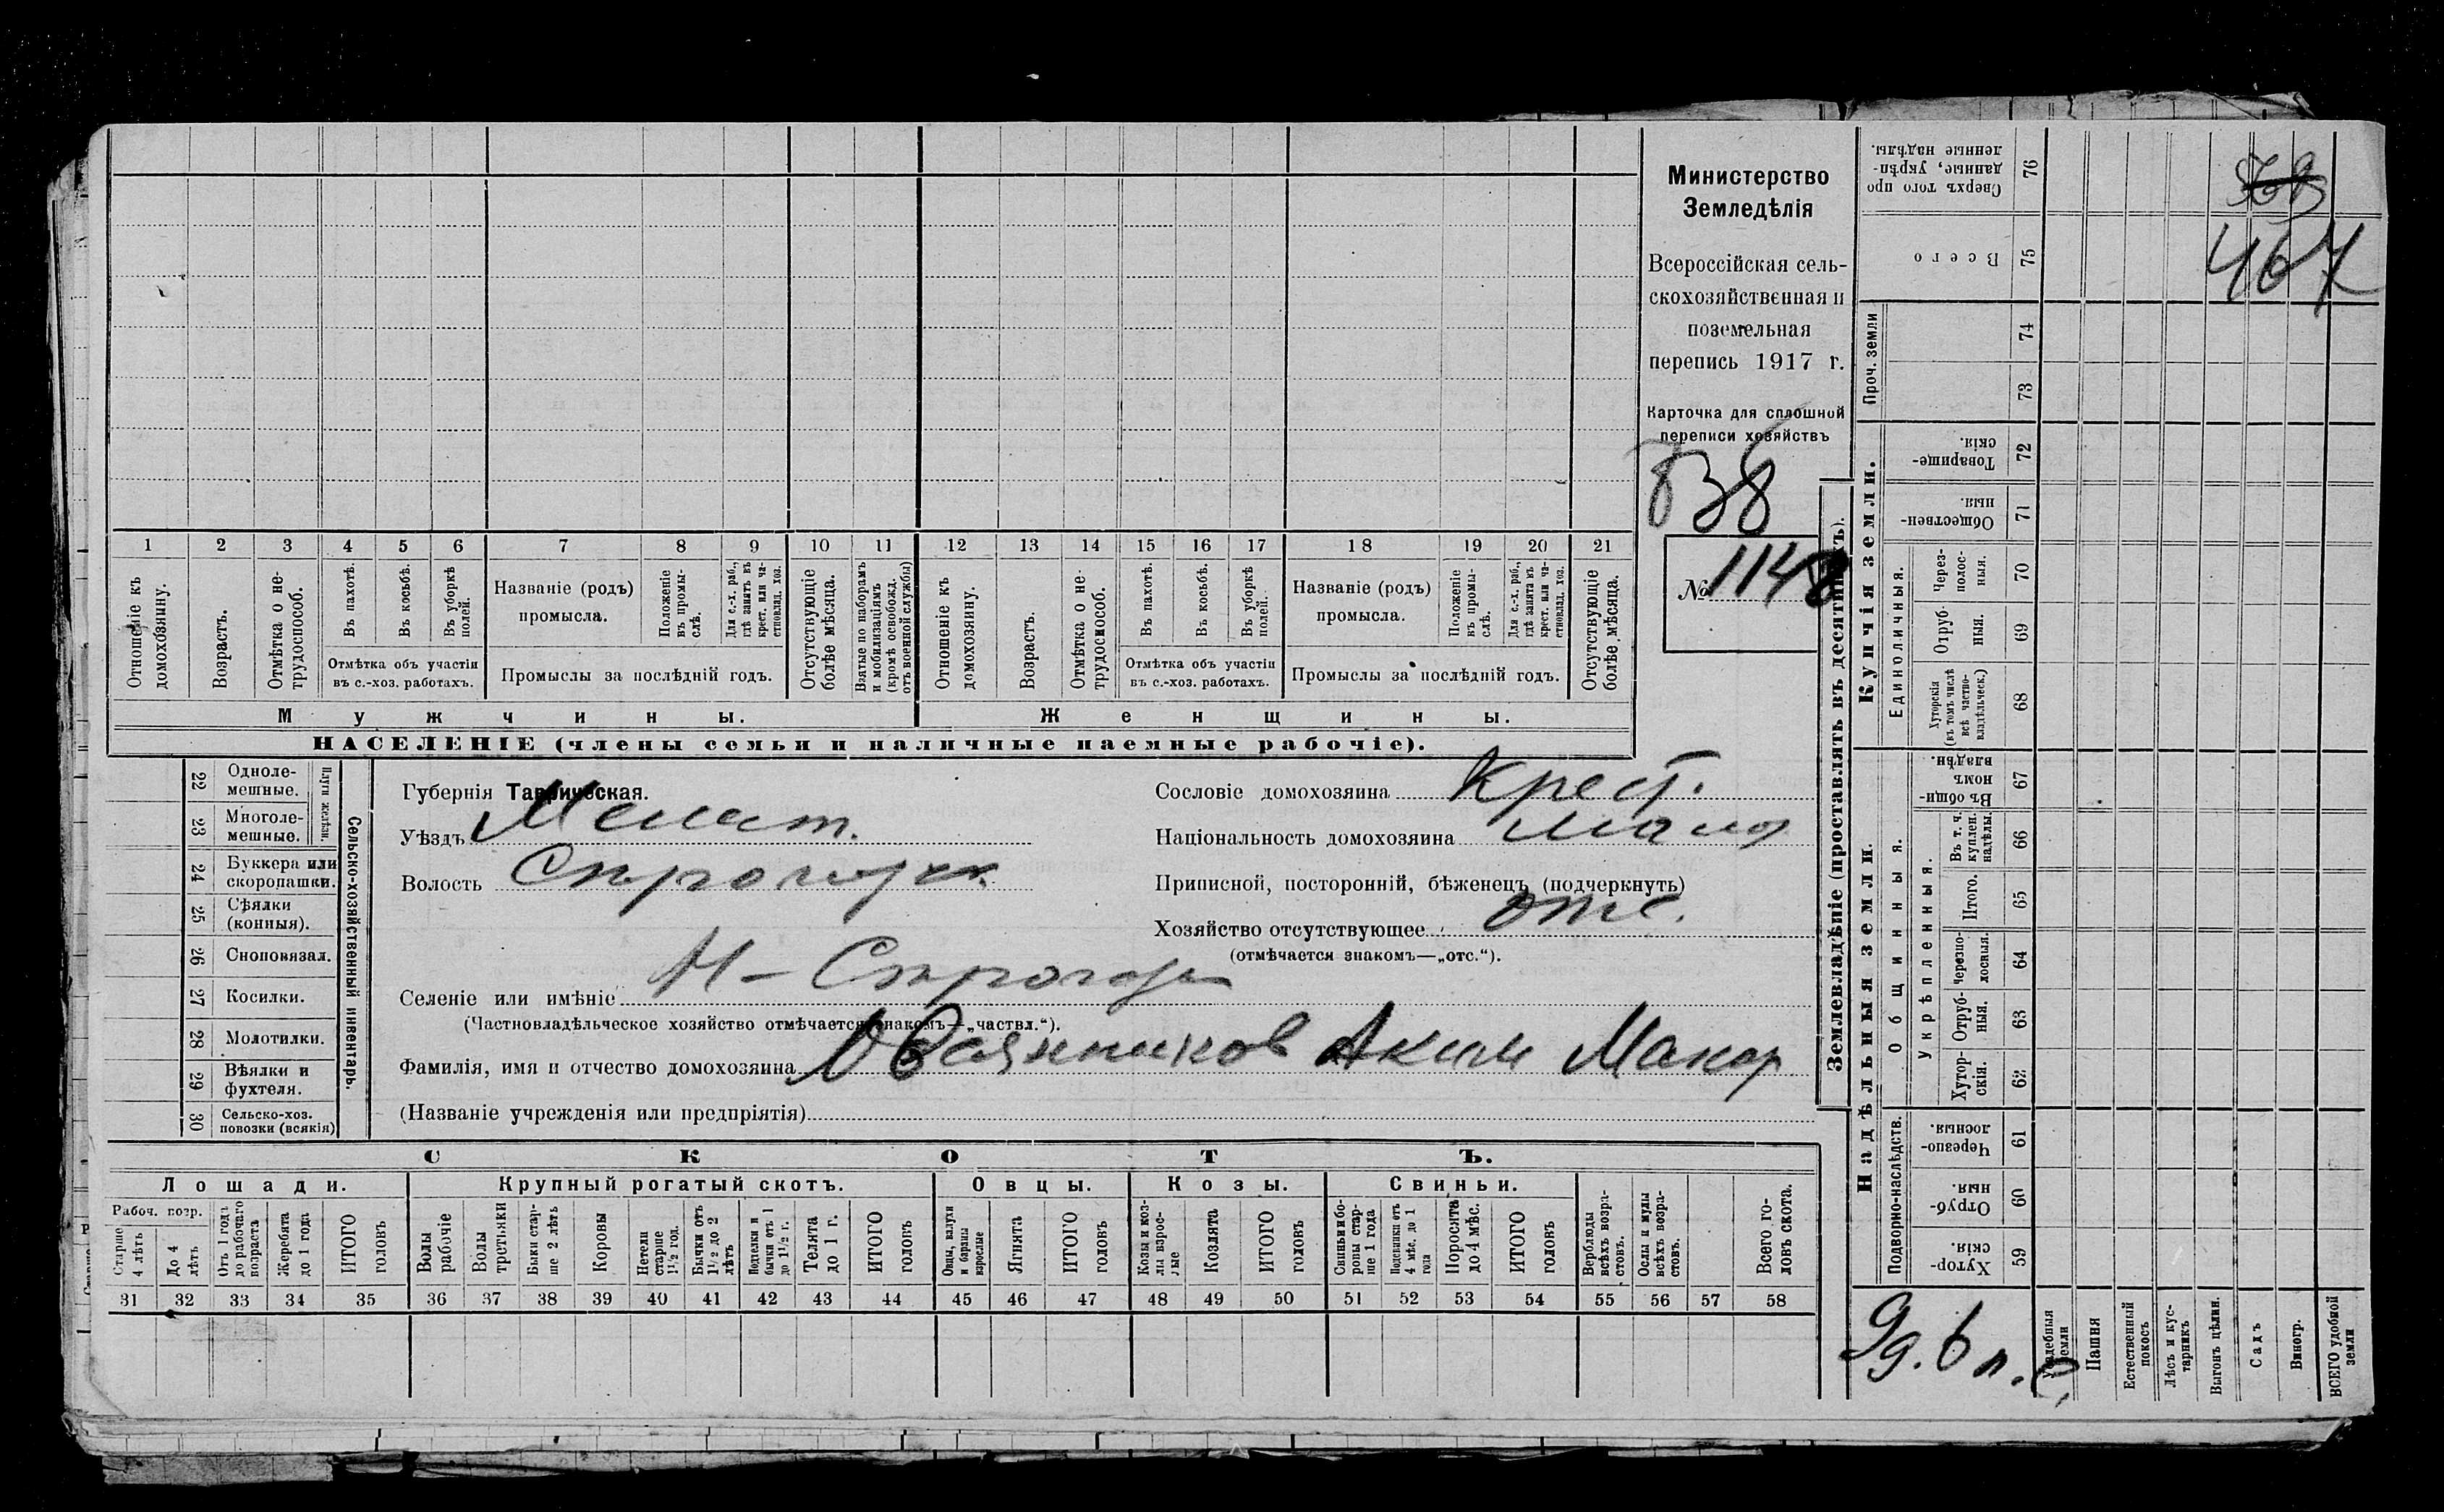 Министерство
Земледѣлія
Всероссійская сель-
скохозяйственная и
поземельная
перепись 1917 г.
Карточка для сплошной
переписи хозяйствъ
838
№ 1148
1 2 3 4 5 6 7 8 9 10 11 12 13 14 15 16 17 18 19 20 21
Отношеніе къ домохозяину.
Возрастъ.
Отмѣтка о не-трудоспособ.
Въ пахотѣ.
Въ косьбѣ.
Въ уборкѣ полей.
Названіе (родъ) промысла.
Положеніе въ промы-слѣ.
Для с.-х. раб., гдѣ занятъ въ крест. или ча-стновлад. хоз.
Отсутствующіе болѣе мѣсяца.
Взятые по наборамъ и мобилизаціямъ (кромѣ освобожд. отъ военной службы)
Отношеніе къ домохозяину.
Возрастъ.
Отмѣтка о не-трудоспособ.
Въ пахотѣ.
Въ косьбѣ.
Въ уборкѣ полей.
Названіе (родъ) промысла.
Положеніе въ промы-слѣ.
Для с.-х. раб., гдѣ занята въ крест. или ча-стновлад. хоз.
Отсутствующіе болѣе мѣсяца.
Отмѣтка объ участіи въ с.-хоз. работахъ.
Промыслы за послѣдній годъ.
Отмѣтка объ участіи въ с.-хоз. работахъ.
Промыслы за послѣдній годъ.
Мужчины.
Женщины.
НАСЕЛЕНІЕ (члены семьи и наличные наемные рабочіе).
Сельско-хозяйственный инвентарь.
22 Одноле-мешные.
23 Многоле-мешные.
24 Буккера или скоропашки.
25 Сѣялки (конныя).
26 Сноповязал.
27 Косилки.
28 Молотилки.
29 Вѣялки и фухтеля.
30 Сельско-хоз. повозки (всякія)
Губернія Таврическая.
Уѣздъ Мелит.
Волость
Селеніе или имѣніе
(Частновладѣльческое хозяйство отмѣчается знакомъ—„частвл.“).
Фамилія, имя и отчество домохозяина Овсянников Аким Макар
(Названіе учрежденія или предпріятія)
Сословіе домохозяина Крест.
Національность домохозяина мало
Приписной, посторонній, бѣженецъ (подчеркнуть)
Хозяйство отсутствующее отс.
(отмѣчается знакомъ—„отс.“).
СКОТЪ.
Лошади.
Крупный рогатый скотъ.
Овцы.
Козы.
Свиньи.
Рабоч. возр.
Старше 4 лѣтъ
До 4 лѣтъ
Отъ 1 года до рабочаго возраста
Жеребята до 1 года
ИТОГО головъ
Волы рабочіе
Волы третьяки
Быки стар-ше 2 лѣтъ
Коровы
Нетели старше 1½ год.
Бычки отъ 1½ до 2 лѣтъ
Телята до 1 г.
ИТОГО головъ
Овцы, валухи и бараны взрослые
Ягнята
ИТОГО головъ
Козы и коз-лы взрос-лые
Козлята
ИТОГО головъ
Свиньи и бо-ровы стар-ше 1 года
Подсвинки отъ 4 мѣс. до 1 года
Поросята до 4 мѣс.
ИТОГО головъ
Верблюды всѣхъ возра-стовъ.
Ослы и мулы всѣхъ возра-стовъ.
Всего го-ловъ скота.
31 32 33 34 35 36 37 38 39 40 41 42 43 44 45 46 47 48 49 50 51 52 53 54 55 56 57 58
Землевладѣніе (проставлять въ десятинахъ).
Надѣльныя земли.
Купчія земли.
Проч. земли
Сверхъ того про данные, укрѣп-ленные надѣлы. 76
Всего 75
74
73
Товарище-скія. 72
Обществен-ныя. 71
Единоличныя.
Через-полос-ныя. 70
Отруб-ныя. 69
Хуторскія (въ томъ числѣ всѣ частно-владѣльческ.) 68
Общинныя.
Въ общин-номъ владѣн. 67
Укрѣпленныя.
Въ т. ч. куплен. надѣлы. 66
Итого. 65
Черезпо-лосныя. 64
Отруб-ныя. 63
Хутор-скія. 62
Подворно-наслѣдств.
Черезпо-лосныя. 61
Отруб-ныя. 60
Хутор-скія. 59
Усадебныя земли
Пашня
Естественный покосъ
Лѣсъ и кус-тарникъ
Выгонъ цѣлин.
Садъ
Виногр.
ВСЕГО удобной земли
467